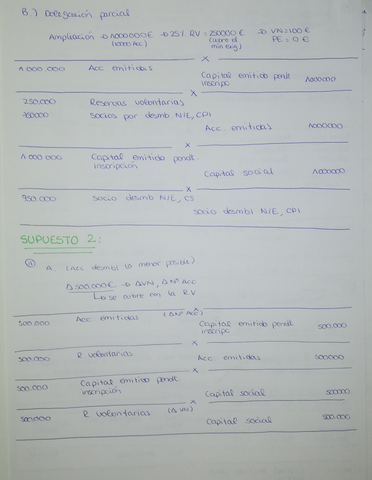 B.) Delegación parcial
Ampliación → 1000000€ → 25% RV = 250000€ → VN=100€
(10000 Acc) (cubre el PE = 0€
min exig)
x
1.000.000 Acc emitidas
Capital emitido pendt 1000000
inscripc
x
250.000 Reservas voluntarias
750000 Socios por desmb N/E, CPI
Acc. emitidas 1000000
x
1.000.000 Capital emitido pendt.
inscripción
Capital social 1000000
x
750.000 socio desmb N/E, CS
socio desmbl N/E, CPI
SUPUESTO 2:
A (Acc desmbl lo menor posible)
Δ500.000€ → ΔVN, Δ Nº Acc
se cubre con la RV
x
500.000 Acc emitidas (Δ Nº Acc)
Capital emitido pendt 500.000
inscripc
x
500.000 R voluntarias Acc emitidas 500000
x
500.000 Capital emitido pendt
inscripción
Capital social 500000
x
500.000 R voluntarias (Δ VN)
Capital social 500.000